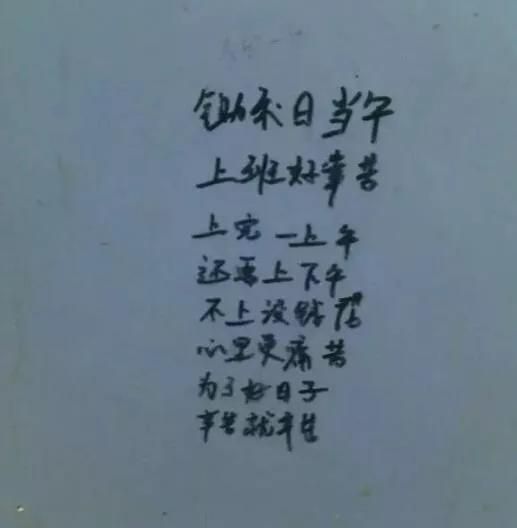 锄禾日当午
上班好辛苦
上完一上午
还要上下午
不上没钱
心里更痛苦
为了好日子
辛苦就辛苦